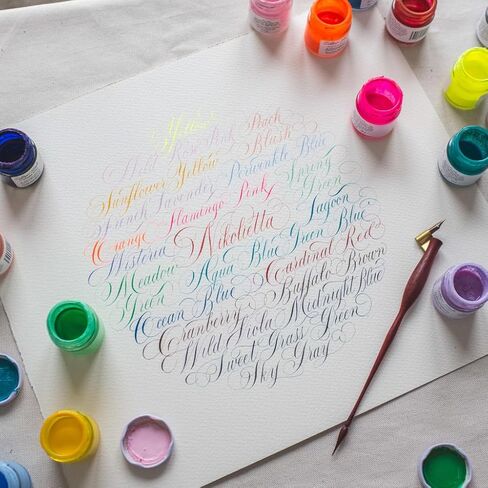 Yellow
Wild Rose Pink Peach
Sunflower Yellow Blush
French Lavender Periwinkle Blue
Orange Flamingo Pink Spring
Wisteria Nikolietta Green
Meadow Aqua Blue Green Lagoon
Green Blue
Ocean Blue Cardinal Red
Cranberry Buffalo Brown
Wild Viola Midnight Blue
Sweet Grass Green
Sky Gray